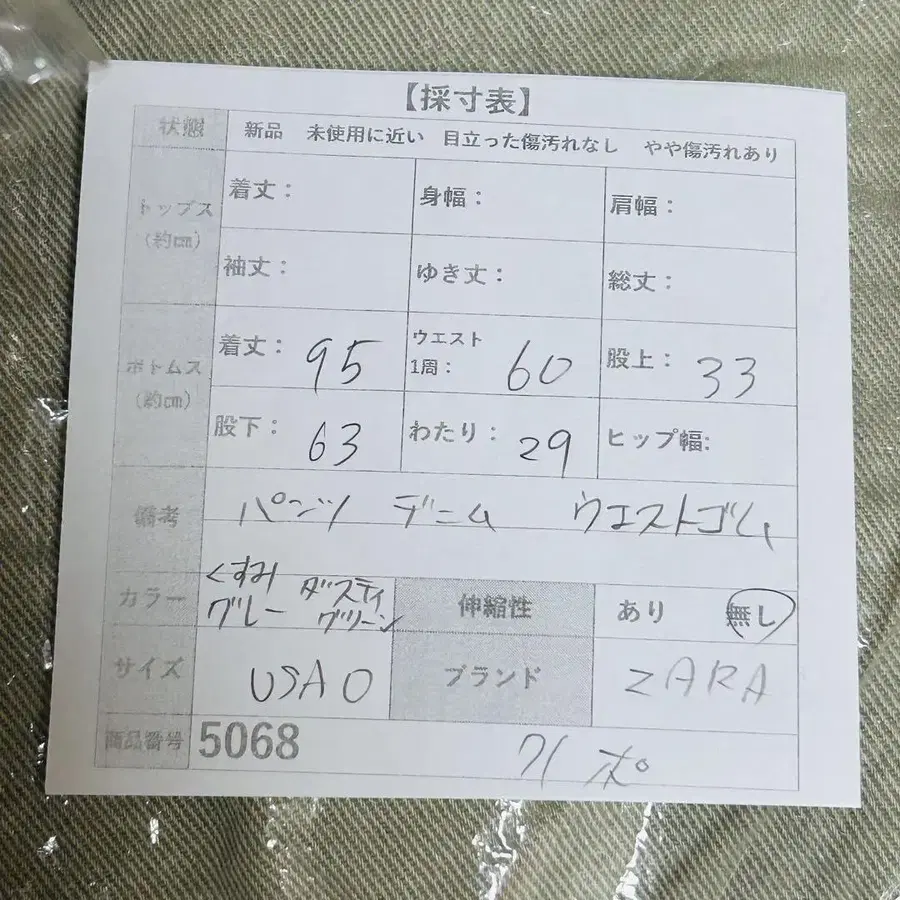 【採寸表】
状態 新品 未使用に近い 目立った傷汚れなし やや傷汚れあり
トップス (約㎝) 着丈： 身幅： 肩幅：
袖丈： ゆき丈： 総丈：
ボトムス (約㎝) 着丈： 95 ウエスト1周： 60 股上： 33
股下： 63 わたり： 29 ヒップ幅:
備考 パンツ デニム ウエストゴム
カラー くすみグレー ダスティグリーン 伸縮性 あり 無し
サイズ USA 0 ブランド ZARA
商品番号 5068